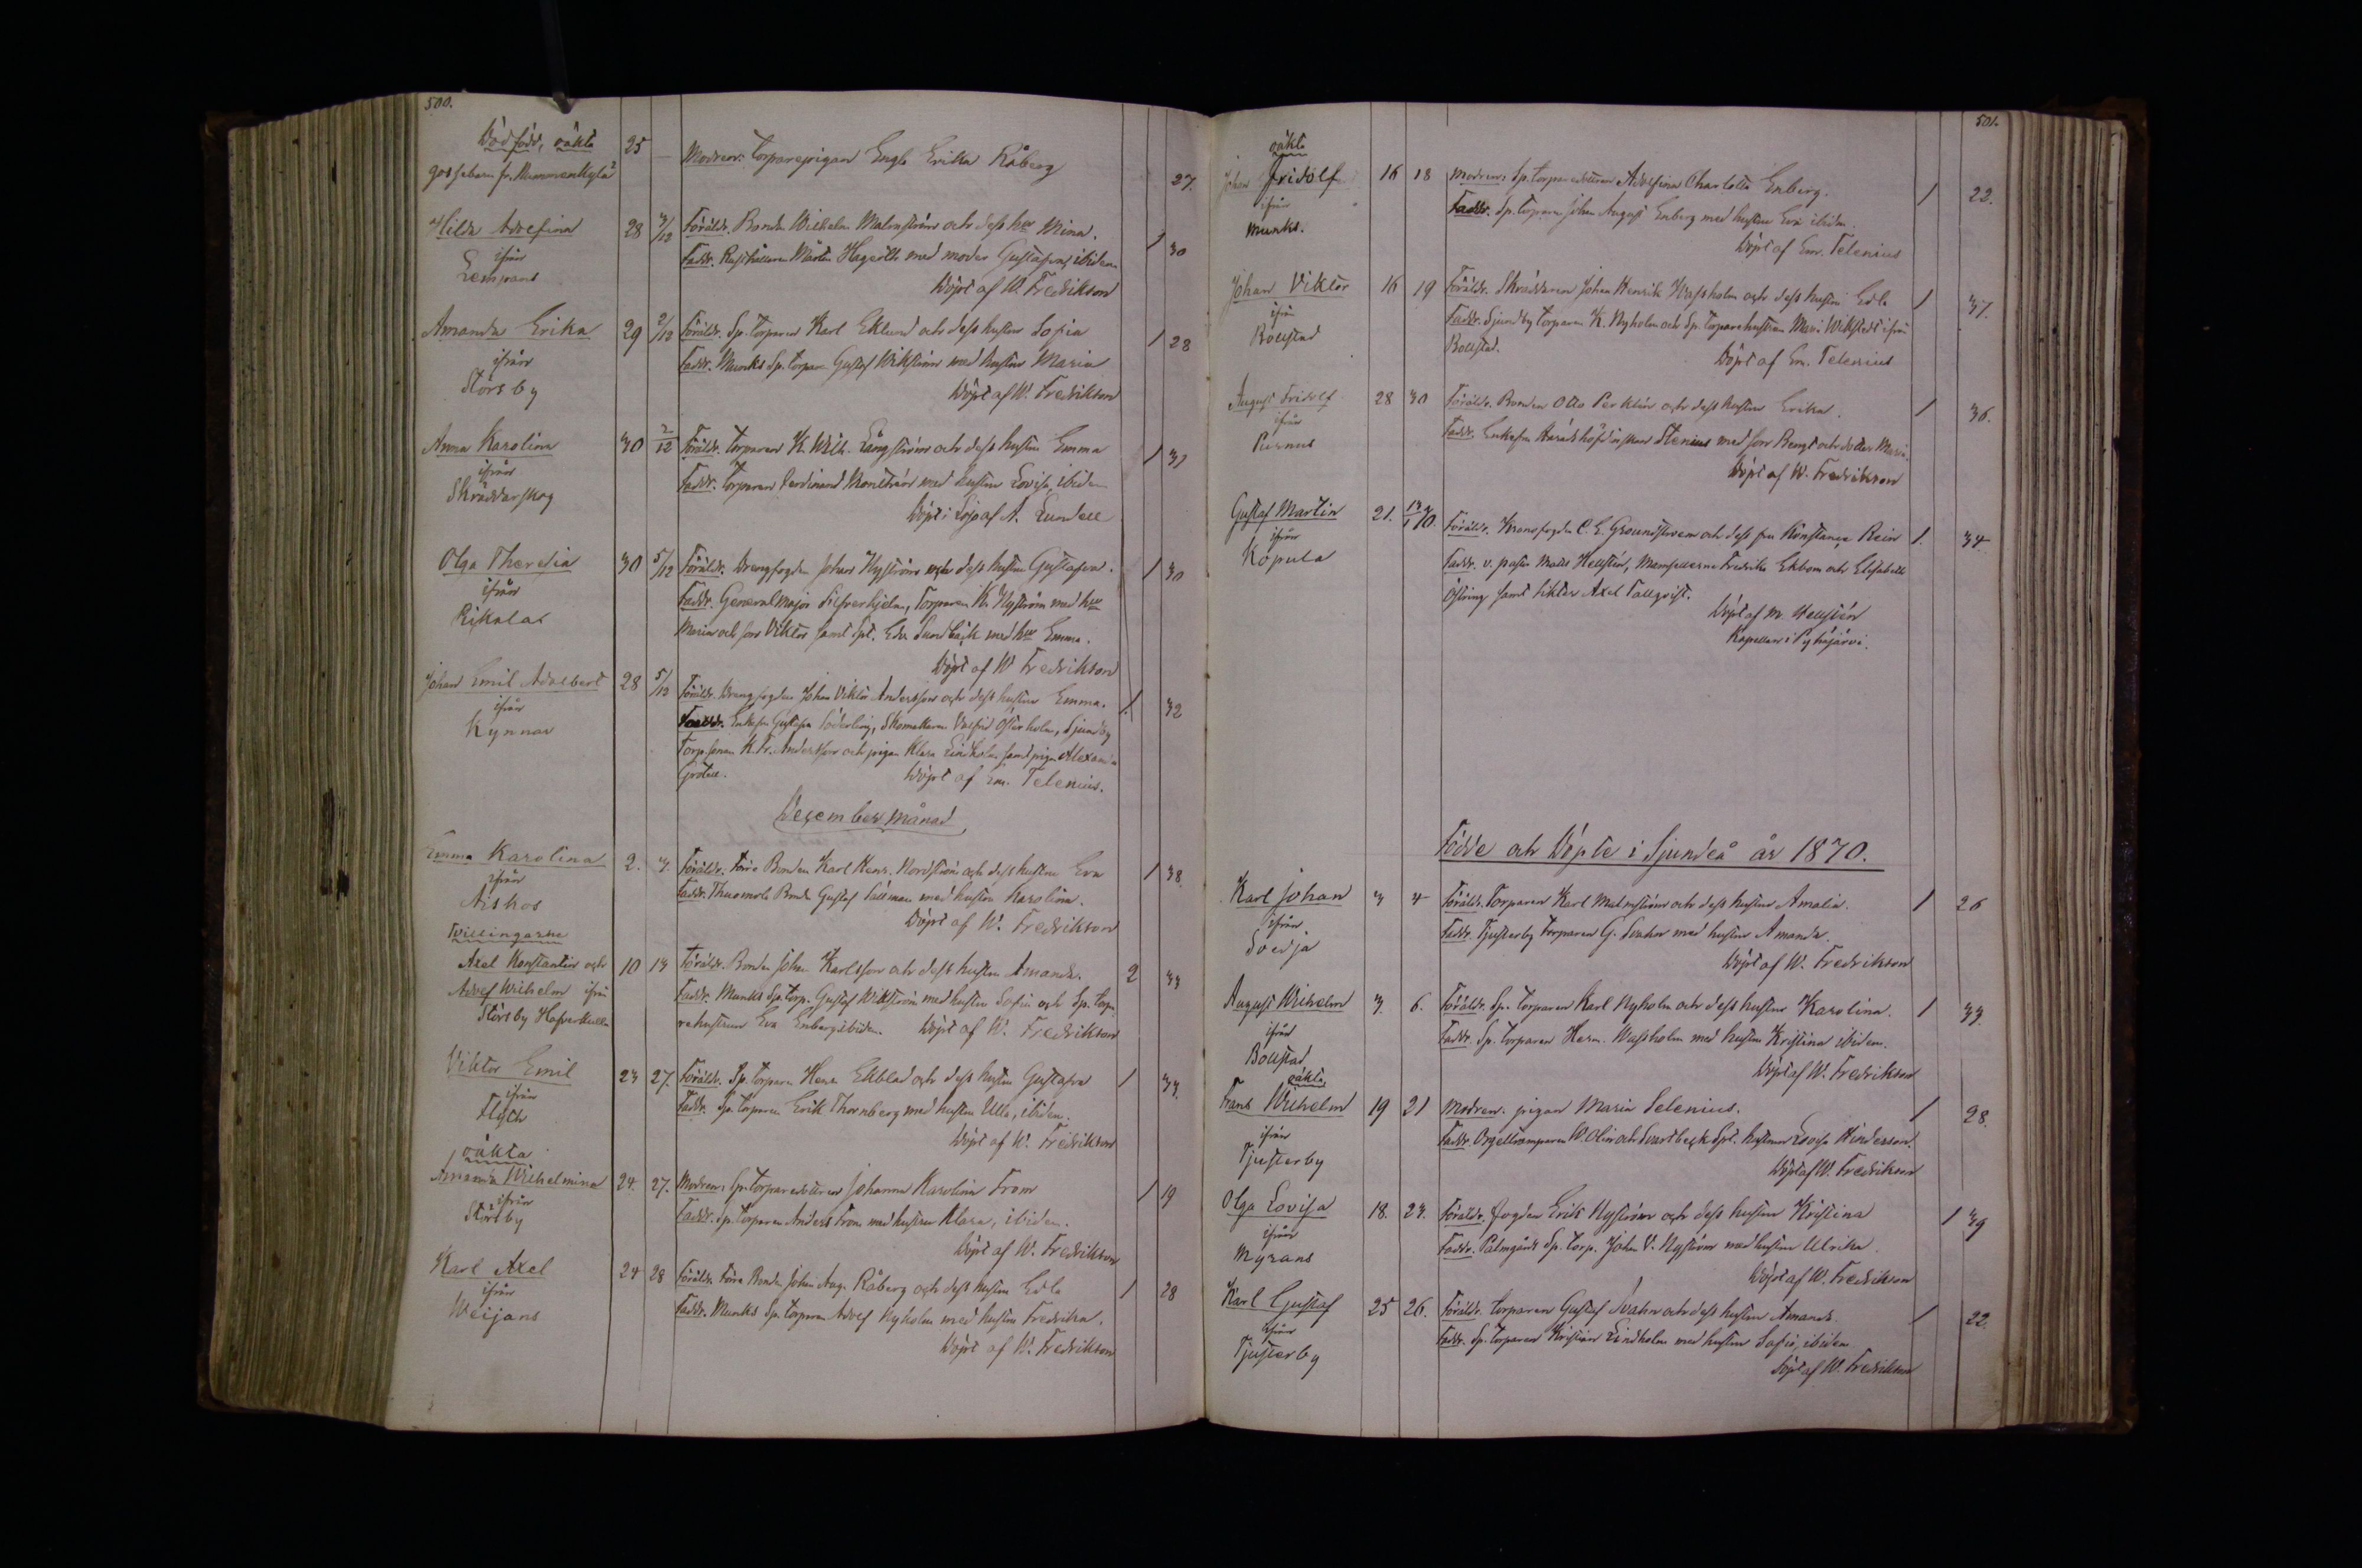 500.
Dödfödd, oäkta 25 — Modren: Torparepigan Engla Erika Råberg 27.
gossebarn fr.
Hilda Adolfina 28 3/12 Föräldr. Bonden Wilhelm Malmström och dess h:u Mina. 1 30
ifrån Faddr. Rusthållaren Mårten Hagert med moder Gustafva, ibidem
Lempans Döpt af W. Fredrikson
Amanda Erika 29 2/12 Föräldr. Sp. Torparen Karl Eklund och dess hustru Sofia 1 28
ifrån Faddr. Munks Sp. torparen Gustaf Wikström med hustru Maria
Störsby Döpt af W. Fredrikson
Anna Karolina 30 2/12 Föräldr. Torparen K. Wilh. Långström och dess hustru Emma 1 31
ifrån Faddr. Torparen Ferdinand med hustru Lovisa, ibidem
Skräddarskog Döpt i Lojo af A. Lundell
Olga Theresia 30 5/12 Föräldr. Drengfogden Johan Nyström och dess hustru Gustafva. 1 30
ifrån Faddr. Generalmajor Silfverhjelm, Torparen K. Nyström med h:u
Rikalas Maria och son Viktor samt Spt. Edv. Sundbäck med h:u Emma.
Döpt af W Fredrikson
Johan Emil Adalbert 28 5/12 Föräldr. Drengfogden Johan Viktor Andersson och dess hustru Emma. 1 32
ifrån Faddr. Enkefru Gustafva Söderling, Skomakaren Valfrid Österholm, Sjundby
Kynnar Torp.sonen K. Fr. Andersson och pigan Klara Lindholm samt pigan Alexandra
Grotell. Döpt af Em. Telenius.
December månad
Emma Karolina 2. 3. Föräldr. Förre Bonden Karl Henr. Nordström och dess hustru Eva 1 38.
ifrån Faddr. Bonde Gustaf Sällman med hustru Karolina.
Aiskos Döpt af W. Fredrikson
Tvillingarne
Axel Konstantin och 10 13 Föräldr. Bonden Johan Karlsson och dess hustru Amanda. 2 33
Adolf Wilhelm ifrån Faddr. Munks Sp. Torp. Gustaf Wikström med hustru Sofia och Sp. torpa-
Störsby Hafverkulla rehustrun Eva Enberg ibidem. Döpt af W. Fredrikson
Viktor Emil 23 27. Föräldr. Sp. Torparen Henr. Ekblad och dess hustru Gustafva 1 33.
ifrån Faddr. Sp. torparen Erik Thornberg med hustru Ulla, ibidem.
Flyt Döpt af W. Fredrikson
oäkta
Amanda Wilhelmina 24. 27. Modren: Sp. torparedottren Johanna Karolina From 1 19
ifrån Faddr. Sp. torparen Anders From med hustru Klara, ibidem.
Störsby Döpt af W. Fredrikson
Karl Axel 24 28 Föräldr. Förre Bonden Johan Aug. Råberg och dess hustru Edla 1 28
ifrån Faddr. Munks Sp. torparen Adolf Nyholm med hustru Fredrika.
Weijans Döpt af W. Fredrikson
501.
oäkta
Johan Fridolf 16 18 Modren: Sp. torparedottren Adolfina Charlotta Enberg. 1 22.
ifrån Faddr. Sp. torparen Johan August Enberg med hustru Eva ibidem.
Munks. Döpt af Em. Telenius
Johan Viktor 16 19 Föräldr. Skräddaren Johan Henrik Wassholm och dess hustru Edla 1 37.
ifrån Faddr. Sjundby torparen K. Nyholm och Sp. torparehustrun Maria Wikstedt ifrån
Bollstad Bollstad.
Döpt af Em. Telenius
August Fridolf 28 30 Föräldr. Bonden Otto Perklén och dess hustru Erika. 1 36.
ifrån Faddr. Enkefru Häradshöfdinskan Stenius med son Bengt och dotter Maria.
Purnus Döpt af W. Fredrikson
Gustaf Martin 21. 13/1 70. Föräldr. Kronofogden C. E. Groundstroem och dess fru Konstance Rein 1. 34.
ifrån Faddr. v. pastor Matts Hellstén, Mamsellerna Fredrika Ekbom och Elisabeth
Kopula Östring samt Axel Tallqvist.
Döpt af M. Hellstén
Kapellan i Pyhäjärvi.
Födde och Döpte i Sjundeå år 1870.
Karl Johan 3 4 Föräldr. Torparen Karl Malmström och dess hustru Amalia. 1 26
ifrån Faddr. Tjusterby torparen G. Svahn med hustru Amanda.
Svedja Döpt af W. Fredrikson
August Wilhelm 3. 6. Föräldr. Sp. torparen Karl Nyholm och dess hustru Karolina. 1 33.
ifrån Faddr. Sp. torparen Herm. Wassholm med hustru Kristina ibidem.
Bollstad Döpt af W. Fredrikson
oäkta
Frans Wilhelm 19 21 Modren: pigan Maria Selenius. 1 28.
ifrån Faddr. Orgeltramparen W. Olin och Svartbeck Spt. hustrun Lovisa Hindersson.
Tjusterby Döpt af W. Fredrikson
Olga Lovisa 18. 23. Föräldr. fogden Erik Nyström och dess hustru Kristina 1 39
ifrån Faddr. Palmgårds Sp. torp. Johan V. Nyström med hustru Ulrika.
Myrans Döpt af W. Fredrikson
Karl Gustaf 25 26. Föräldr. torparen Gustaf Svahn och dess hustru Amanda. 1 22.
ifrån Faddr. Sp. torparen Kristian Lindholm med hustru Sofia, ibidem
Tjusterby Döpt af W. Fredrikson